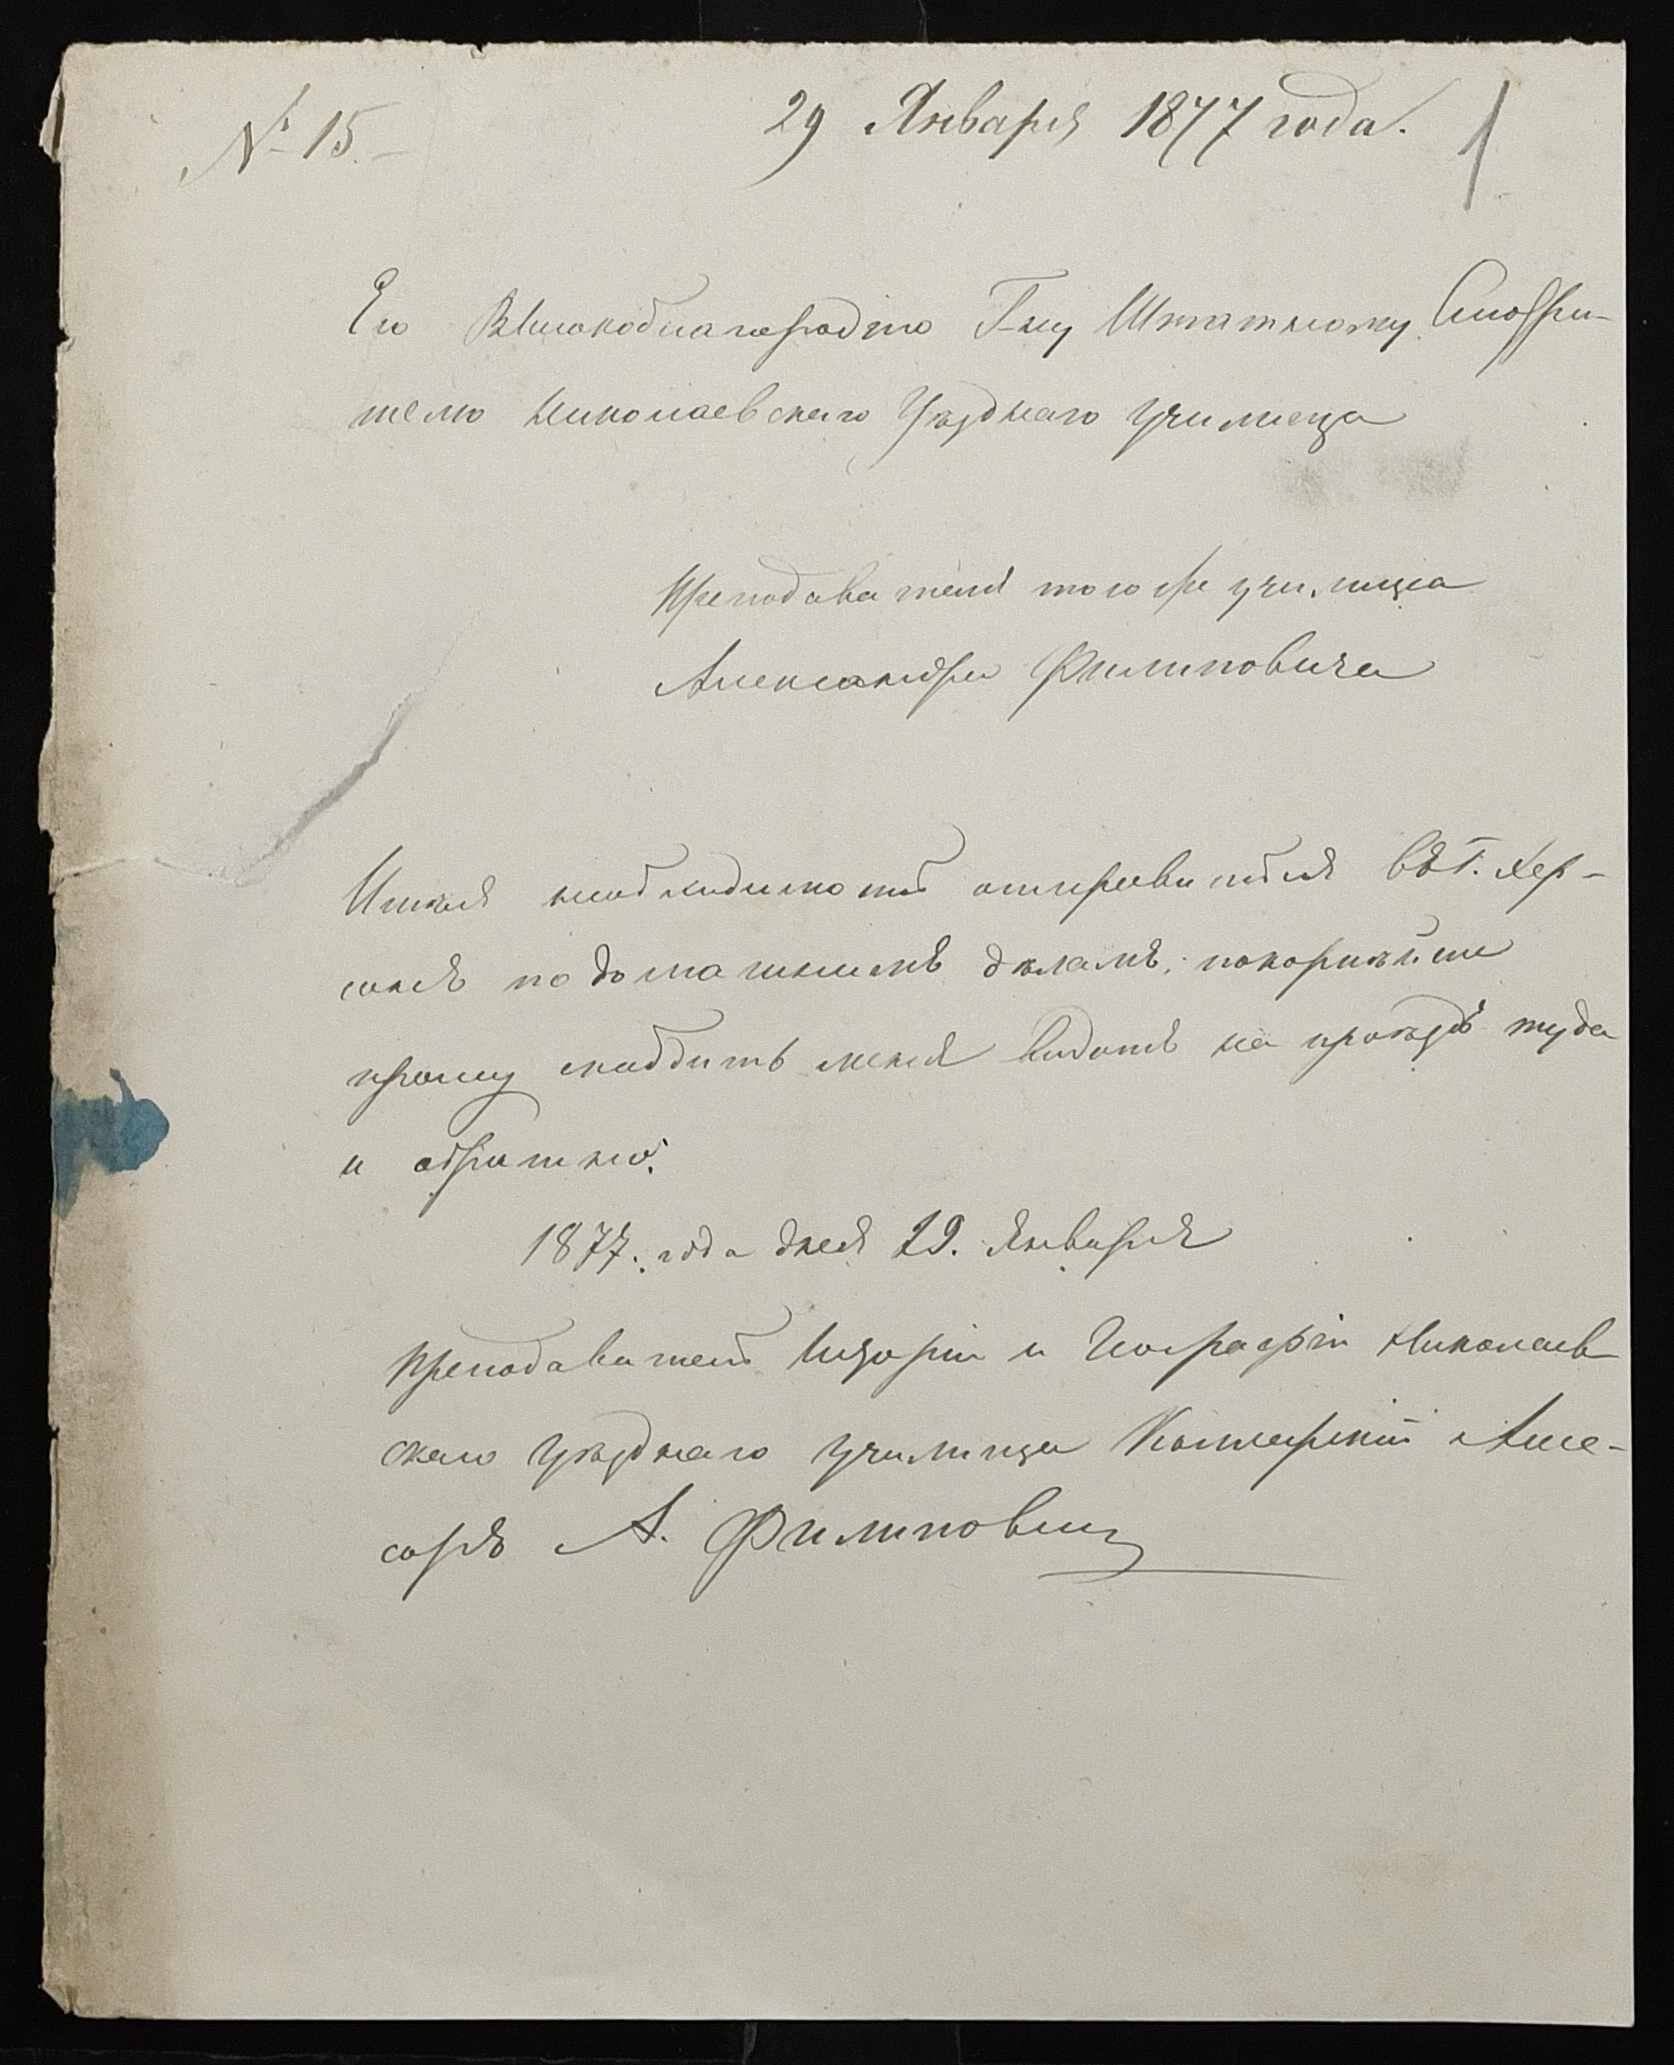 № 15.
29 Января 1877 года.
1
Его Высокоблагородію Г-ну Штатному Смотри-
телю Николаевскаго Уѣзднаго Училища
Преподавателя того же училища
Александра Филиповича
Имѣя необходимость отправится въ г. Хер-
сонъ по домашнимъ дѣламъ, покорнѣйше
прошу снабдить меня видомъ на проѣздъ туда
и обратно.
1877. года дня 29. Января
Преподаватель Исторіи и Географіи Николаев-
скаго Уѣзднаго училища Коллежскій Ассе-
соръ А. Филиповичъ